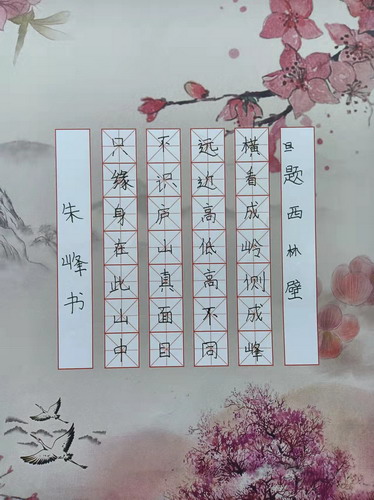 题西林壁
横看成岭侧成峰
远近高低高不同
不识庐山真面目
只缘身在此山中
朱峰书